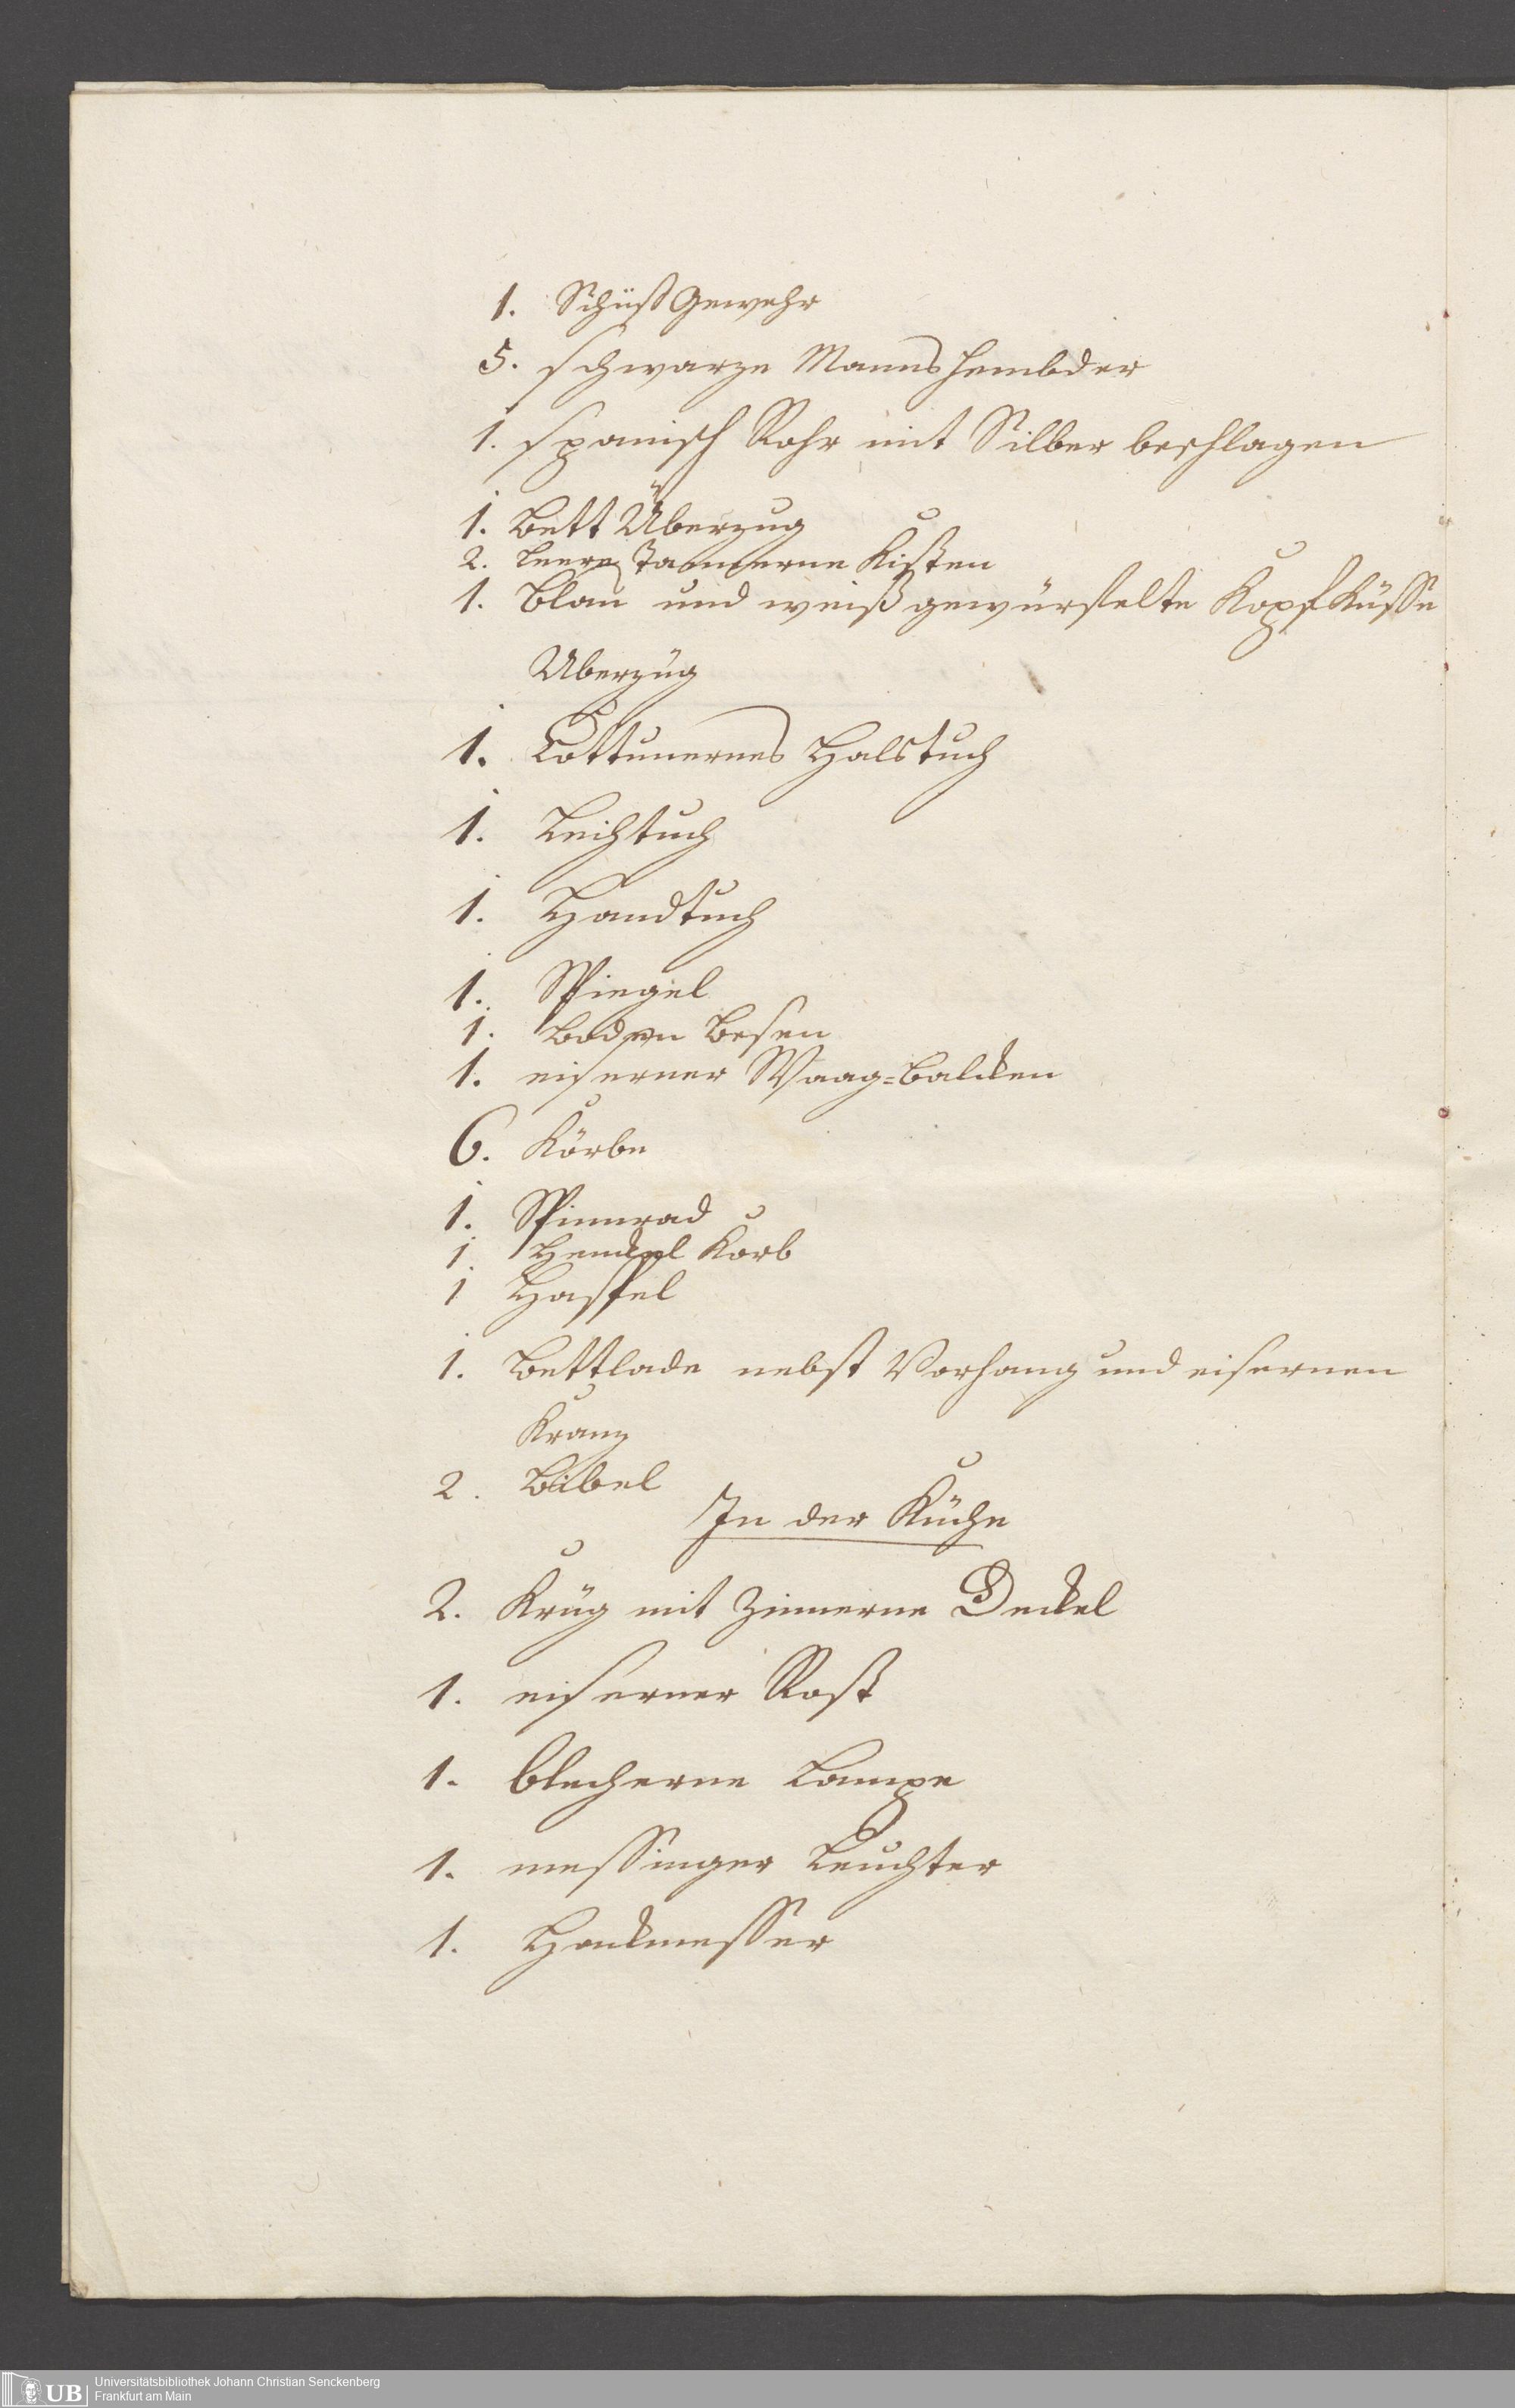 1. Schüß Gewehr
5. schwarze Manns hembder
1. spanisch Rohr mit Silber beschlagen
1. Bett Überzug
2. leere Tannerne Kisten
1. Blau und weiß gewürfelte Kopf Küsse
Uberzüg
1. Cottunernes Halstuch
1. Leichtuch
1. Handtuch
1. Spiegel
1. Boden Besen
1. eiserner Waag=balcken
6. Körbe
1. Spinnrad
1. Henckel Korb
1 Haspel
1. Bettlade nebst Vorhang und eisernen
Kranz
2. Bibel
In der Küche
2. Krüg mit Zinnerne Deckel
1. eiserner Rost
1. blecherne Lampe
1. messinger Leuchter
1. Hackmesser
UB
Universitätsbibliothek Johann Christian Senckenberg
Frankfurt am Main